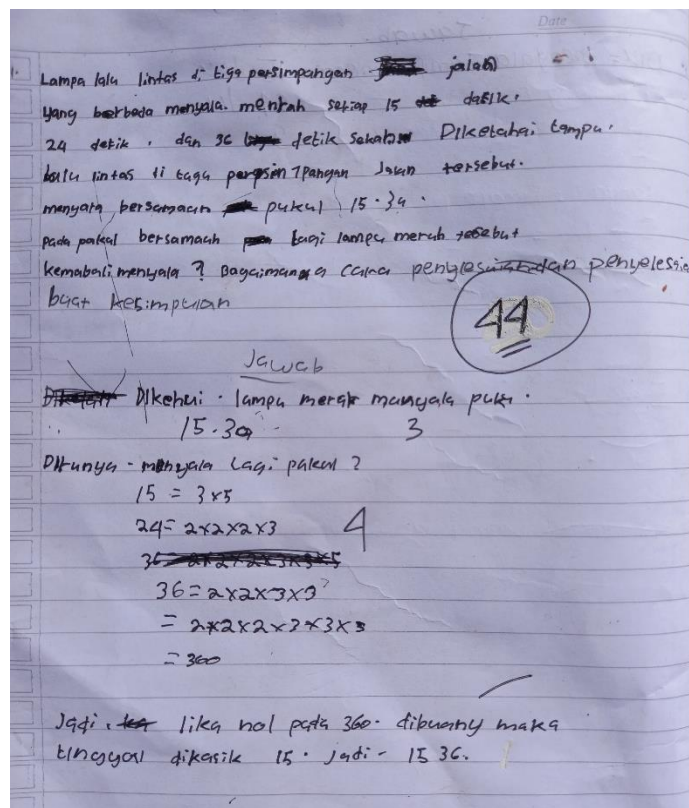 Date
1. Lampa lalu lintas di tiga persimpangan jalan
yang berbeda menyala. merah setiap 15 detik.
24 detik, dan 36 detik sekali Diketahai lampu.
lalu lintas di tiga persimpangan Jalan tersebut.
menyala bersamaan pukul 15.30.
pada pakul bersamaah lagi lampu merah tesebut
kemabali menyala ? Bagaimana cara penyelesaian
buat kesimpulan
44
Jawab
Dikehui - lampu merah manyala pukul.
15.30
3
Ditunya - menyala Lagi pakul ?
15 = 3x5
24= 2x2x2x3
4
36=2x2x3x3
= 2x2x2x3x3x5
= 360
Jadi, lika nol pada 360. dibuang maka
tinggal dikasik 15. Jadi - 15 36.